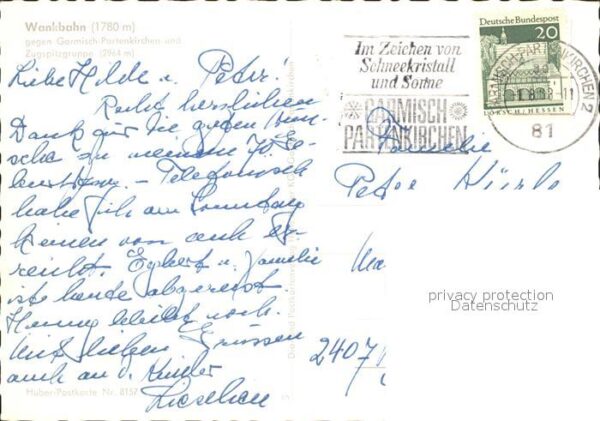 Wankbahn (1780 m)
gegen Garmisch-Partenkirchen und
Zugspitzgruppe (2964 m)
Liebe Hilde u. Peter!
Recht herzlichen
Dank für die guten Wün-
sche zu meinem 70. Ge-
burtstag. – Telefonisch
habe ich am Sonntag
keinen von euch er-
reicht. Egbert u. Familie
ist heute abgereist.
bleibt noch.
Mit lieben Grüssen
auch an d. Kinder
Lieschen
Huber-Postkarte Nr. 8157
Im Zeichen von
Schneekristall
und Sonne
GARMISCH
PARTENKIRCHEN
Deutsche Bundespost
20
LORSCH / HESSEN
GARMISCH-PARTENKIRCHEN 2
81
Familie
Peter
2407
privacy protection
Datenschutz